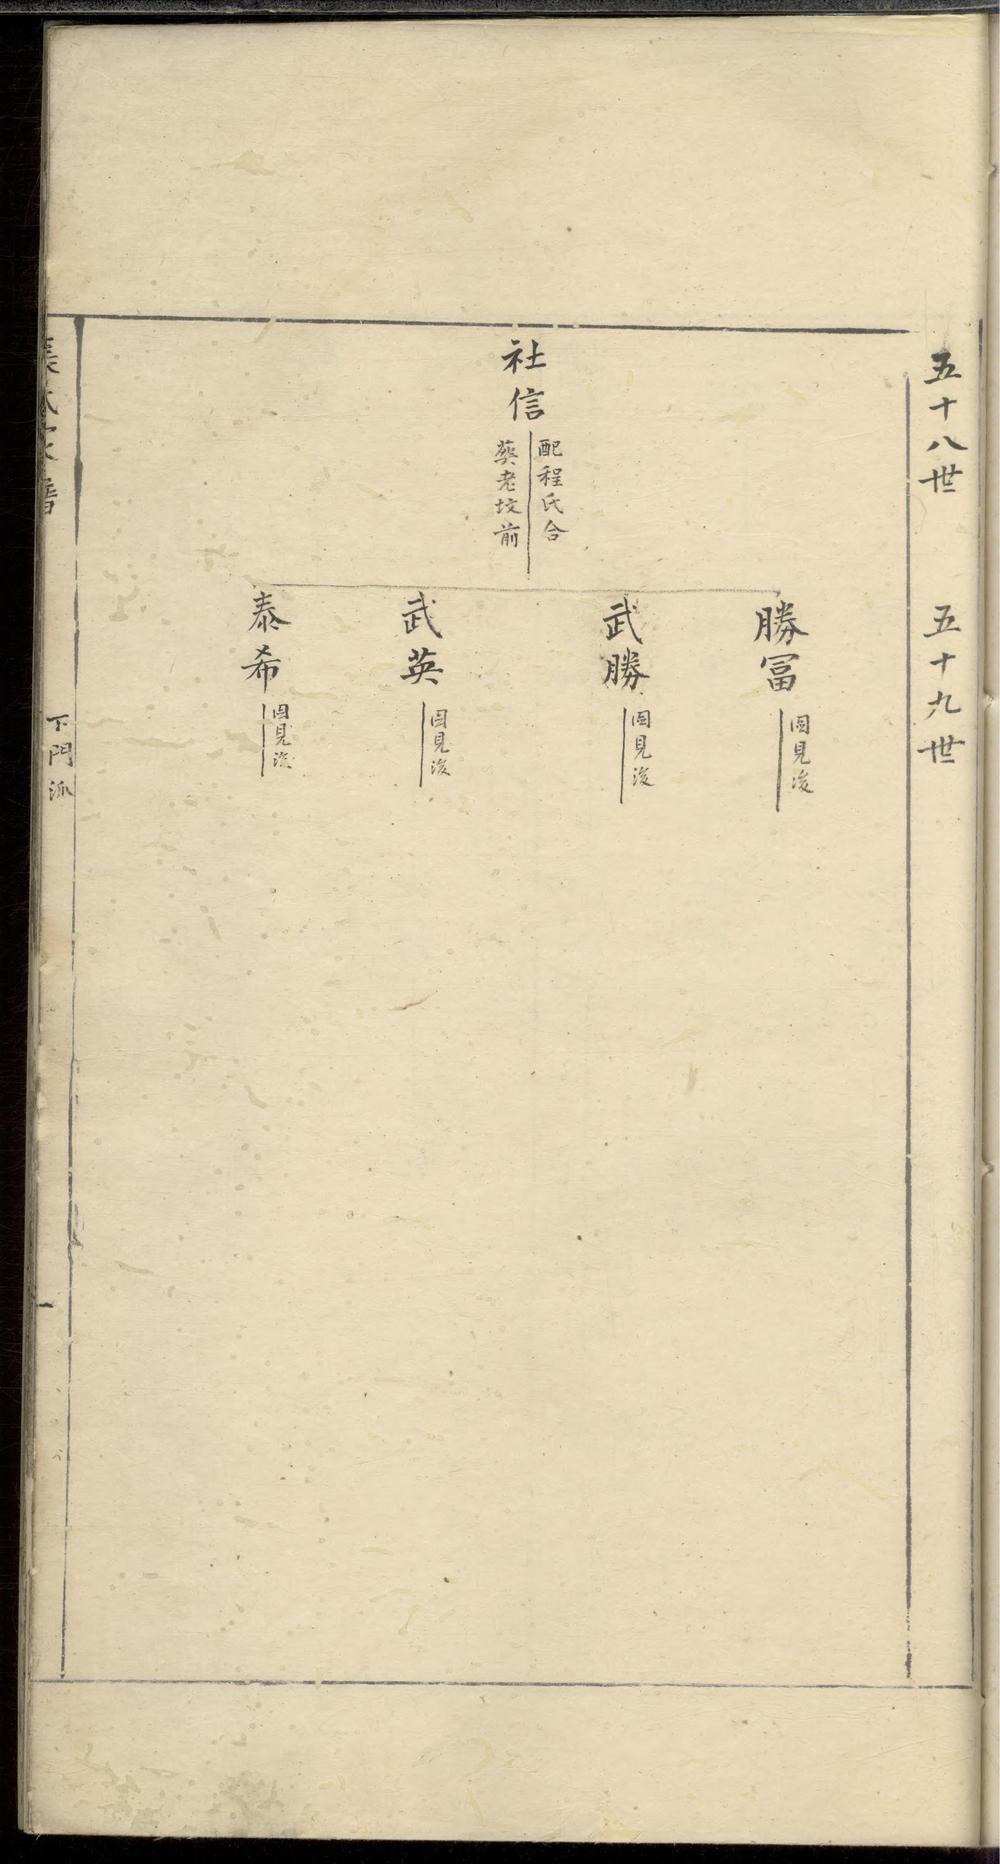 五十八世
五十九世
社信
配程氏合
葵老坟前
勝冨
图見後
武勝
图見後
武英
图見後
泰希
图見後
下門派
一